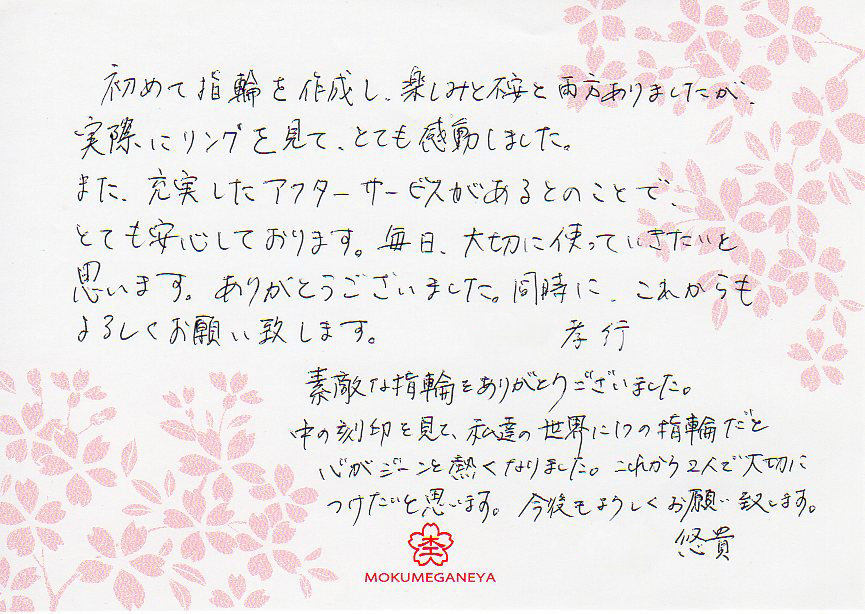 初めて指輪を作成し、楽しみと不安と両方ありましたが、
実際にリングを見て、とても感動しました。
また、充実したアフターサービスがあるとのことで、
とても安心しております。毎日、大切に使っていきたいと
思います。ありがとうございました。同時に、これからも
よろしくお願い致します。
孝行
素敵な指輪をありがとうございました。
中の刻印を見て、私達の世界に1つの指輪だと
心がジーンと熱くなりました。これから2人で大切に
つけたいと思います。今後もよろしくお願い致します。
悠貴
MOKUMEGANEYA